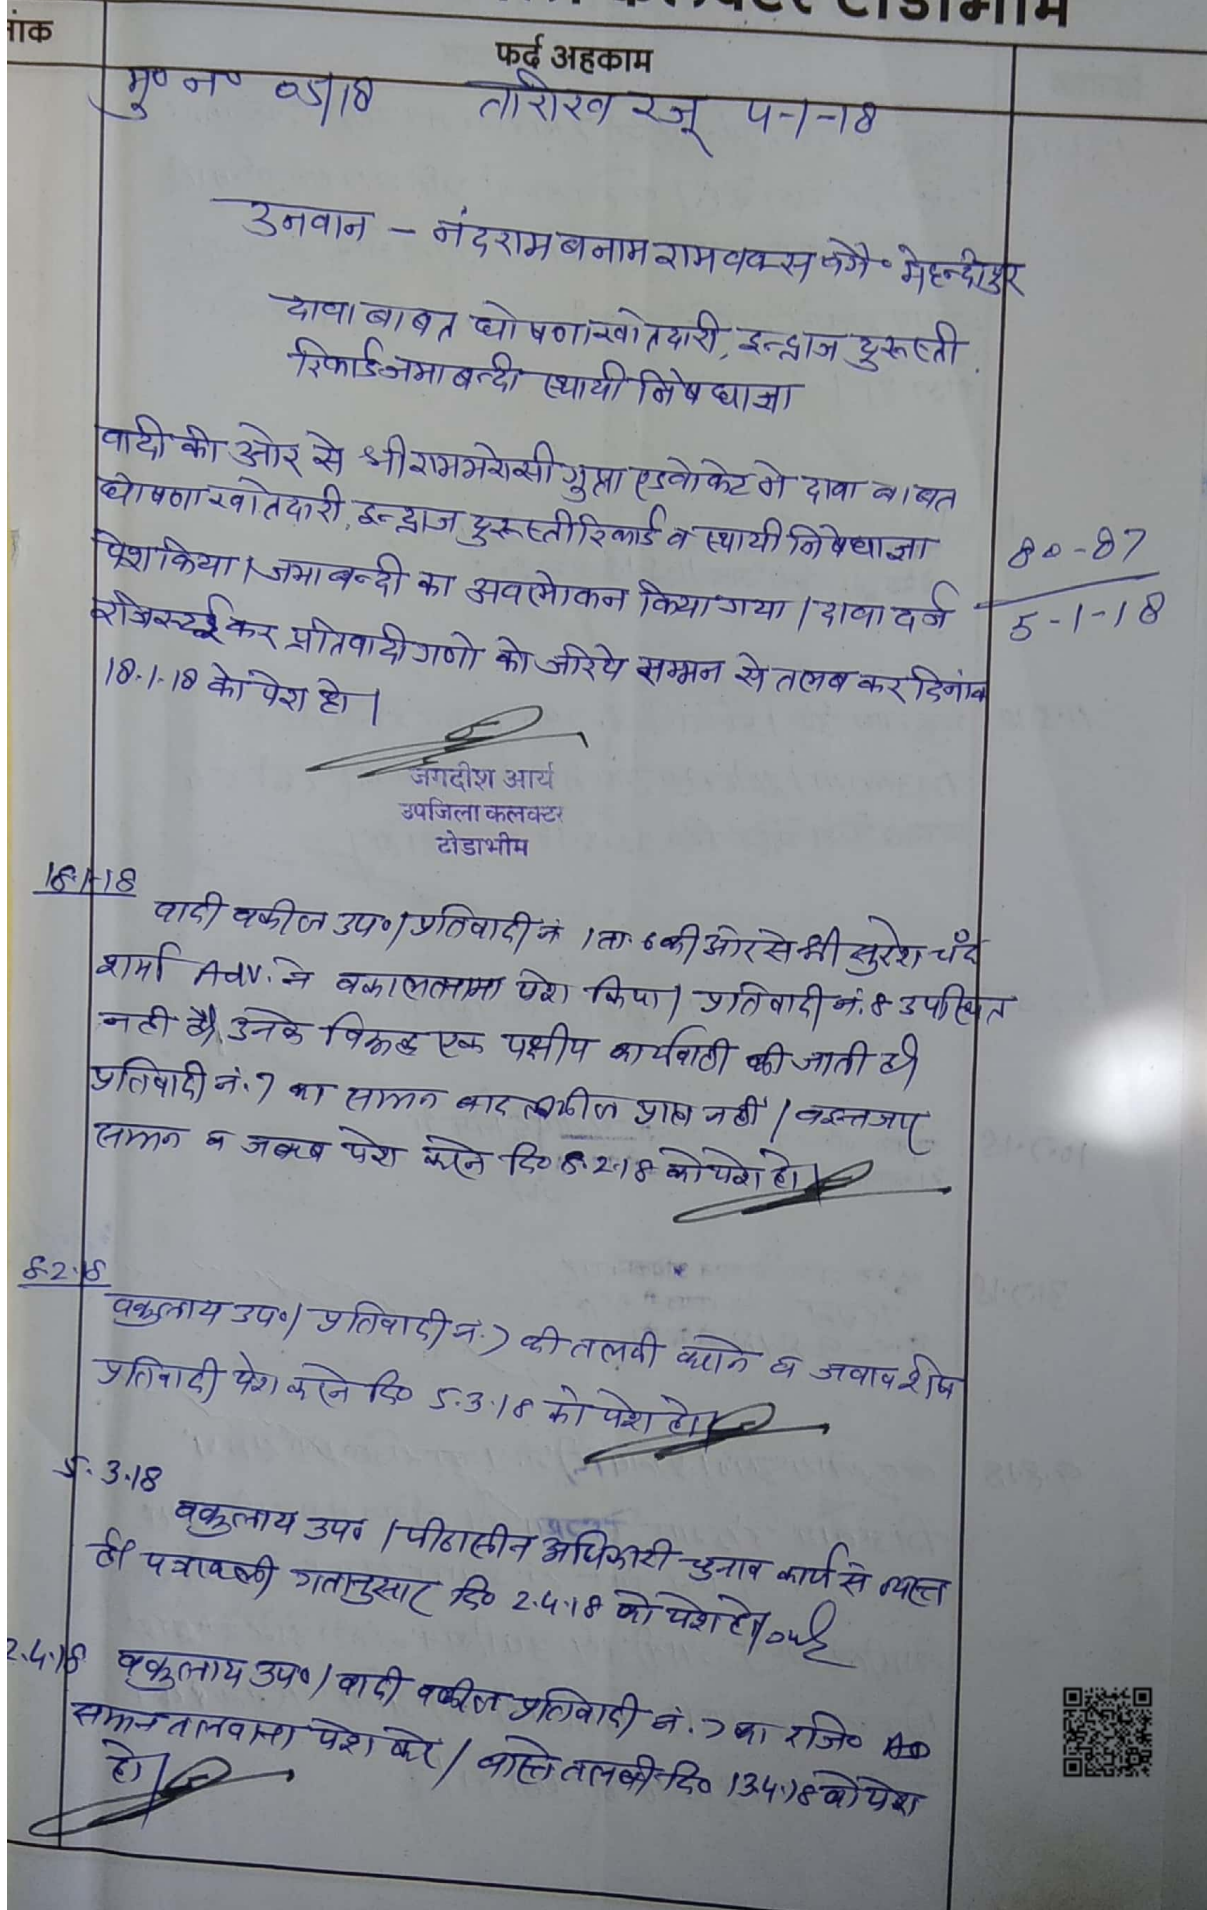 कलक्टर टोडाभीम
नांक
फर्द अहकाम
मु० न० 05/18 तारीख रजू 4-1-18
उनवान - नंदराम बनाम रामवक्स
दावा बाबत घोषणा खातेदारी, इन्द्राज दुरूस्ती
रिकार्ड जमाबन्दी स्थायी निषेधाज्ञा
वादी की ओर से श्री रामभरोसी गुप्ता एडवोकेट ने दावा बाबत
घोषणा खातेदारी, इन्द्राज दुरूस्ती रिकार्ड व स्थायी निषेधाज्ञा
पेश किया। जमाबन्दी का अवलोकन किया गया। दावा दर्ज
80-87
5-1-18
रजिस्टर्ड कर प्रतिवादीगणो को जरिये सम्मन से तलब कर दिनांक
18.1.18 को पेश हो।
जगदीश आर्य
उपजिला कलक्टर
टोडाभीम
18-1-18
वादी वकील उप०। प्रतिवादी नं 1 ता. 6 की ओर से श्री सुरेश चंँद
शर्मा Adv. ने वकालतनामा पेश किया। प्रतिवादी नं. 8 उपस्थित
नही है। उनके विरूद्ध एक पक्षीय कार्यवाही की जाती है।
प्रतिवादी नं. 7 का सम्मन बाद तामील प्राप्त नही।
सम्मन व जबाब पेश करने दि० 8.2.18 को पेश हो।
8.2.18
वकुलाय उप०। प्रतिवादी नं. 7 की तलवी कराने व जवाव शेष
प्रतिवादी पेश करने दि० 5.3.18 को पेश हो।
5.3.18
वकुलाय उप०। पीठासीन अधिकारी चुनाव कार्य से व्यस्त
है। पत्रावली गतानुसार दि० 2.4.18 को पेश हो।
2.4.18
वकुलाय उप०। वादी वकील प्रतिवादी नं. 7 का रजि० AD
सम्मन तलवाना पेश करे। वास्ते तलबी दि० 13.4.18 को पेश
हो।